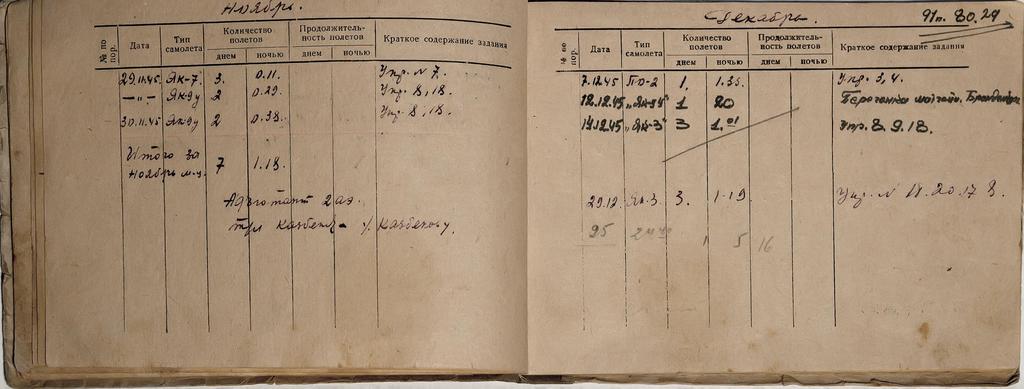 Ноябрь.
№ по пор. Дата Тип самолета Количество полетов днем ночью Продолжитель-ность полетов днем ночью Краткое содержание задания
29.11.45 Як-7 3. 0.11. Упр. N 7.
—"— Як-9у 2 0.29. Упр. 8, 18.
30.11.45 Як-9у 2 0.38. Упр 8, 18.
Итого за
ноябрь м-ц 7 1.18.
Адъютант 2 аэ.
Казбеков
Декабрь. 91п. 80.29
№ по пор. Дата Тип самолета Количество полетов днем ночью Продолжитель-ность полетов днем ночью Краткое содержание задания
7.12.45 ПО-2 1. 1.35. Упр. 3, 4.
12.12.45 "Як-9у" 1 20
14.12.45 "Як-3" 3 1.01 Упр. 8. 9. 18.
29.12. Як-3 3. 1-19 Упр. N 11. 20. 17 8.
95
1 5 16